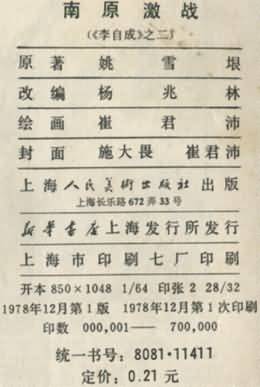 南原激战
(《李自成》之二)
原著 姚雪垠
改编 杨兆林
绘画 崔君沛
封面 施大畏 崔君沛
上海人民美術出版社出版
上海长乐路672弄33号
新华書店上海发行所发行
上海市印刷七厂印刷
开本 850×1048 1/64 印张 2 28/32
1978年12月第1版 1978年12月第1次印刷
印数 000,001—— 700,000
统一书号: 8081·11411
定价: 0.21 元